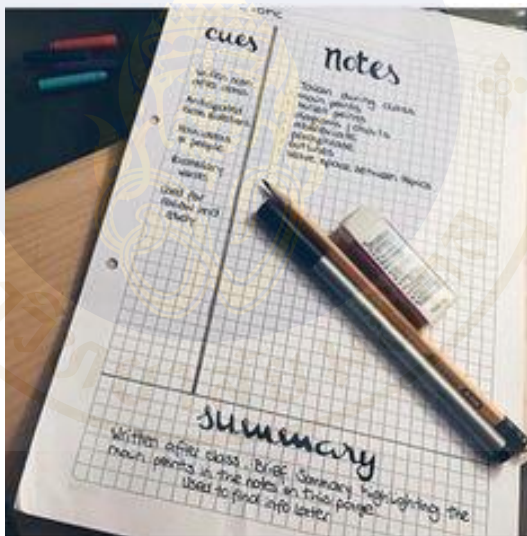 cues
written soon
after class
Anticipated
exam questions
Main ideas
or people
Vocabulary
words
Used for
review and
study
Notes
Taken during class
main points
bullet points
diagrams / charts
abbreviate
paraphrase
outlines
leave space between topics
summary
Written after class. Brief Summary highlighting the
main points in the notes on this page.
Used to find info later